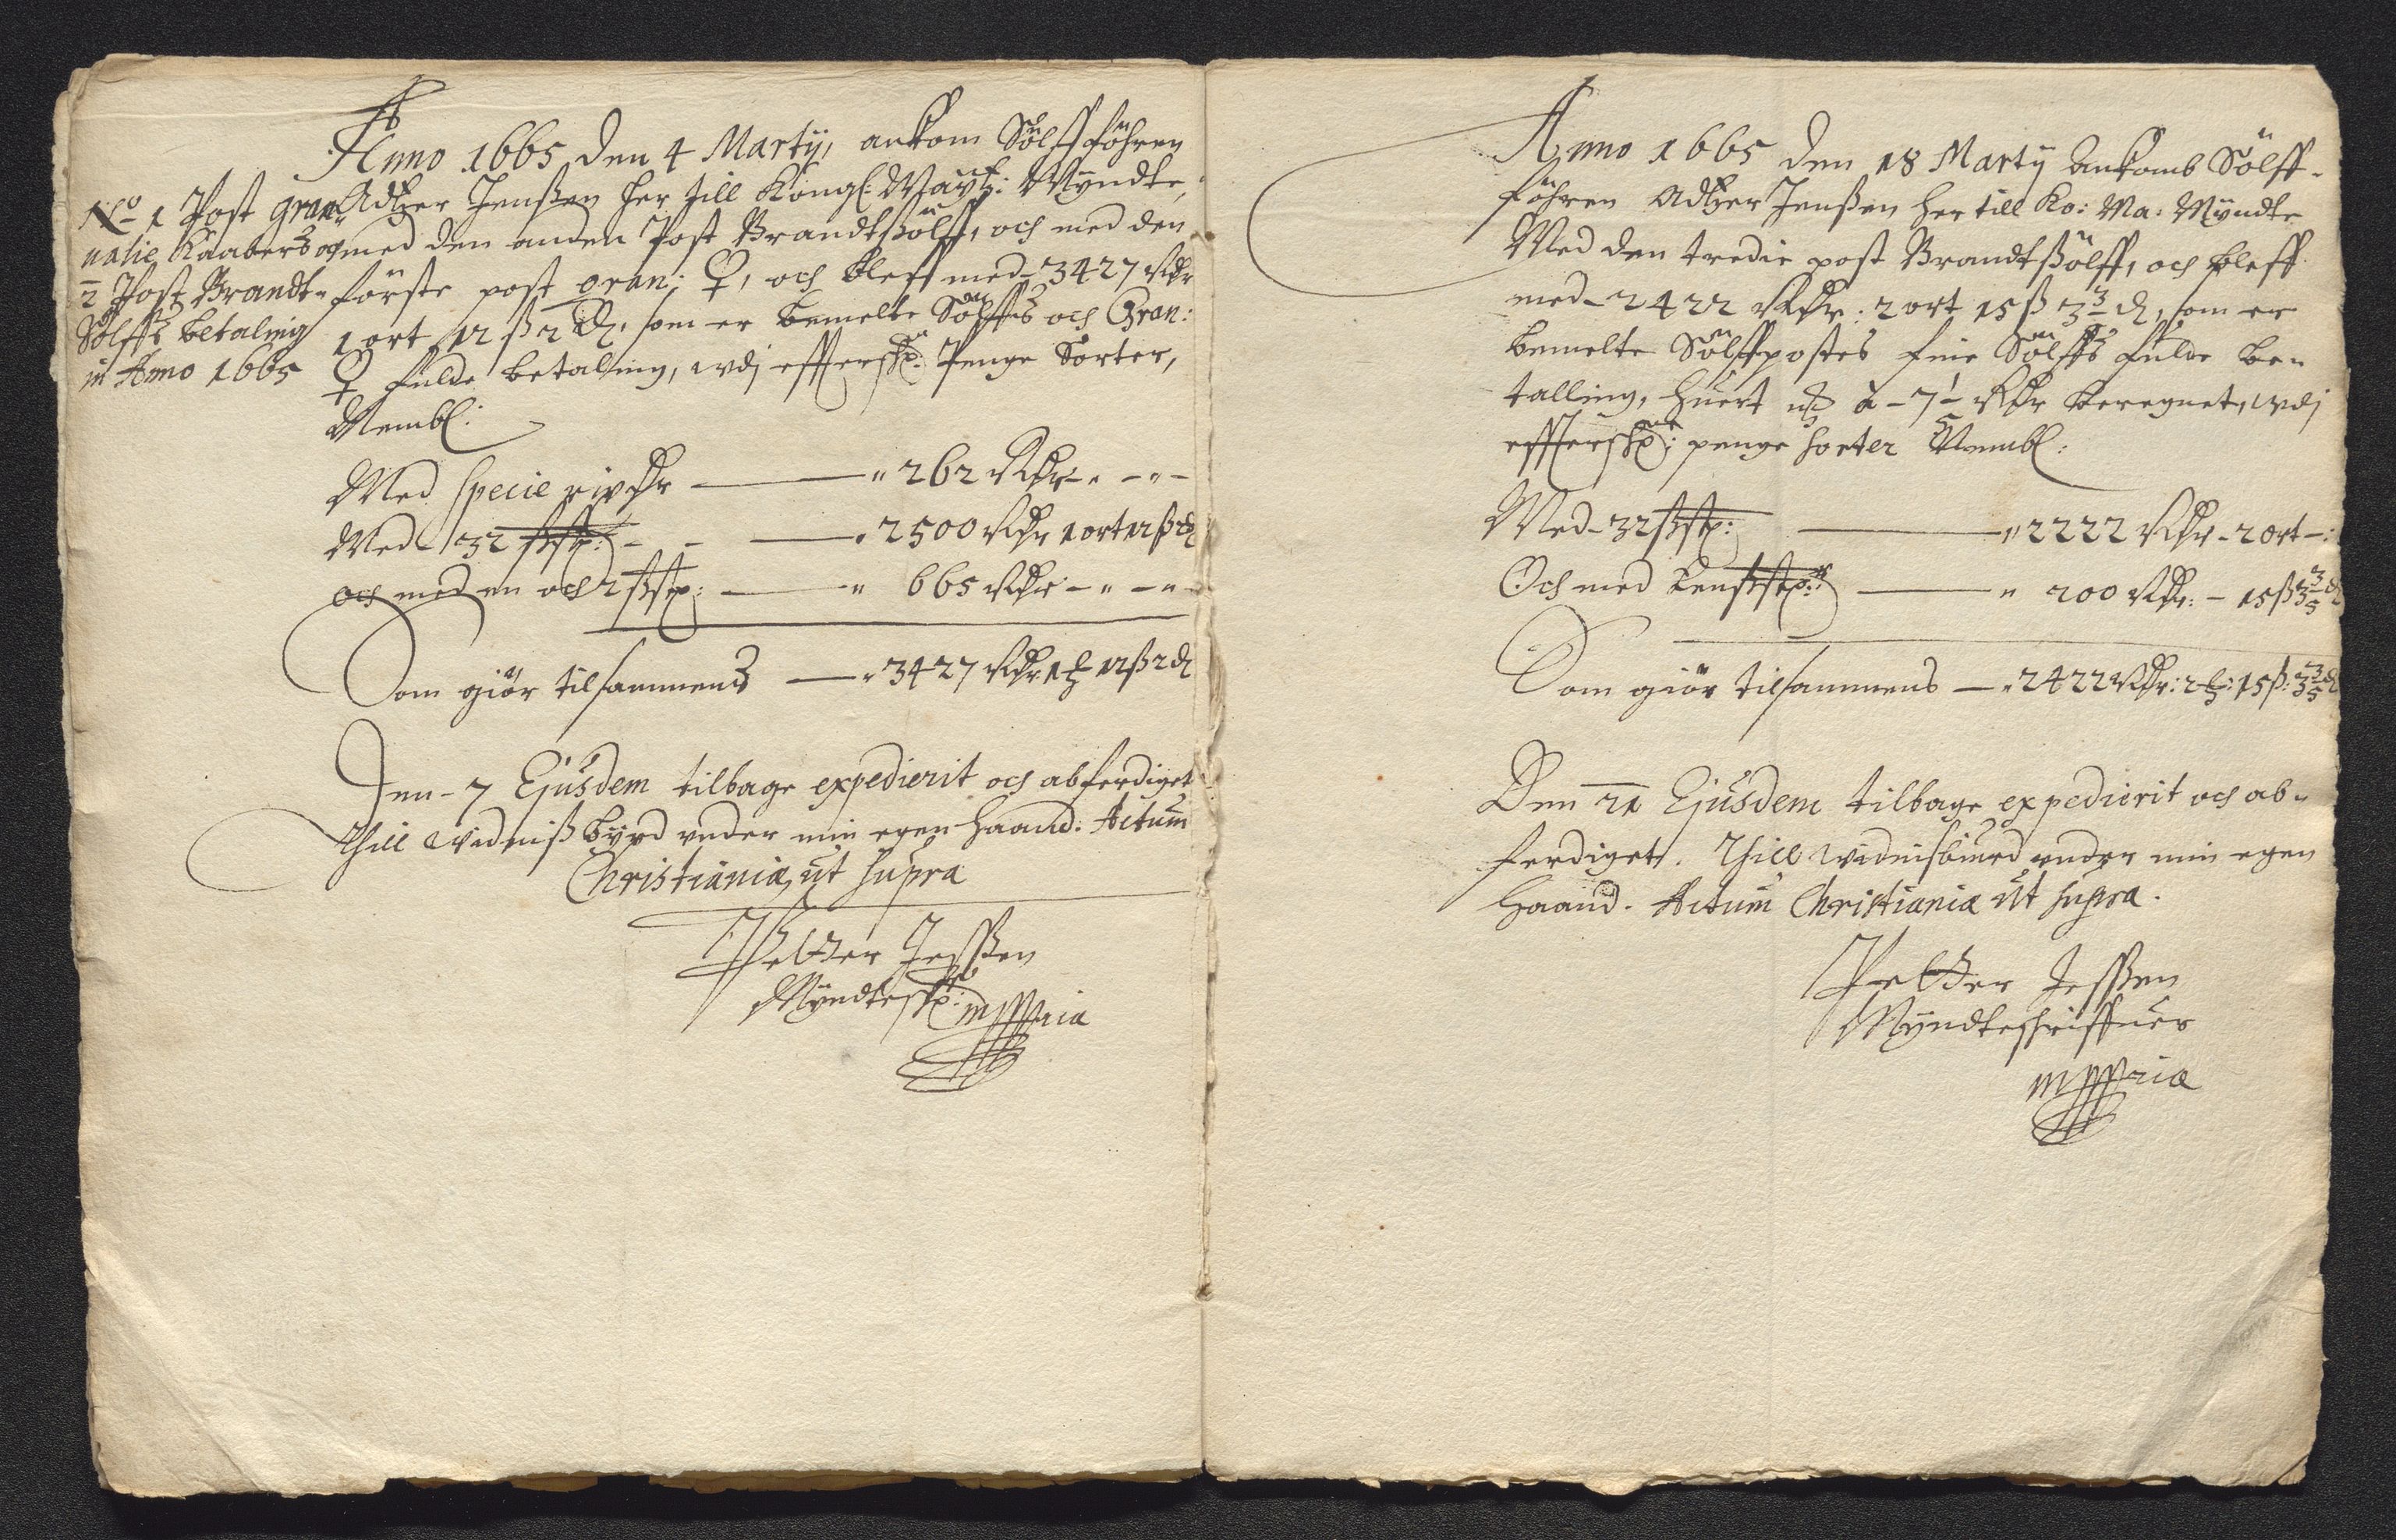 Anno 1665 den 4 Martij, ankom Sölfföhren
Adtzer Jenßen her till Kongl: Maytz: Myndte,
med den anden Post Brandtßölff, och med den
förste post gran: ♀, och bleff med 3427 Rdr
1 ort 12 ß 2 d, som er bemelte Sölffs och Gran:
♀ fulde betaling, wdj effterschr: Penge Sorter,
Nembl:
No 1 Post gran-
nalie Kaabers og
2 Post Brandt-
Sölffs betaling
in Anno 1665
Med Specie rixdr — 262 Rdr - -
Med 32 ßstr: - - — 2500 Rdr 1 ort 12 ß 2 d
och med en och 2 ßstr: — 665 Rdr - -
Som giör tilsammens — 3427 Rdr 1 ort 12 ß 2 d
Den 7 Ejusdem tilbage expedierit och abferdiget
Thill widnißbyrd under min egen haand: Actum
Christiania ut supra
Peltzer Jessßen
Myndteschr: mppria
Anno 1665 den 18 Martij Ankomb Sölff-
föhren Adtzer Jenßen her till Ko: Ma: Myndte
Med den tredie post Brandtßölff, och bleff
med 2422 Rdr: 2 ort 15 ß 3 3/5 d, som er
bemelte Sölffpostes fine Sölffs fulde be-
talling, huert à 7 1/5 Rdr beregnet, wdj
effterschr: penge sorter Nembl:
Med 32 ßstr: — 2222 Rdr - 2 ort -:
Och med ßstr: — 200 Rdr: - 15 ß 3 3/5 d
Som giör tilsammens — 2422 Rdr: 2 ort: 15 ß: 3 3/5 d
Den 21 Ejusdem tilbage expedierit och ab-
ferdiget. Thill widnisbiurd under min egen
haand. Actum Christiania ut supra.
Peltzer Jessßen
Myndteschriffuer
mppria